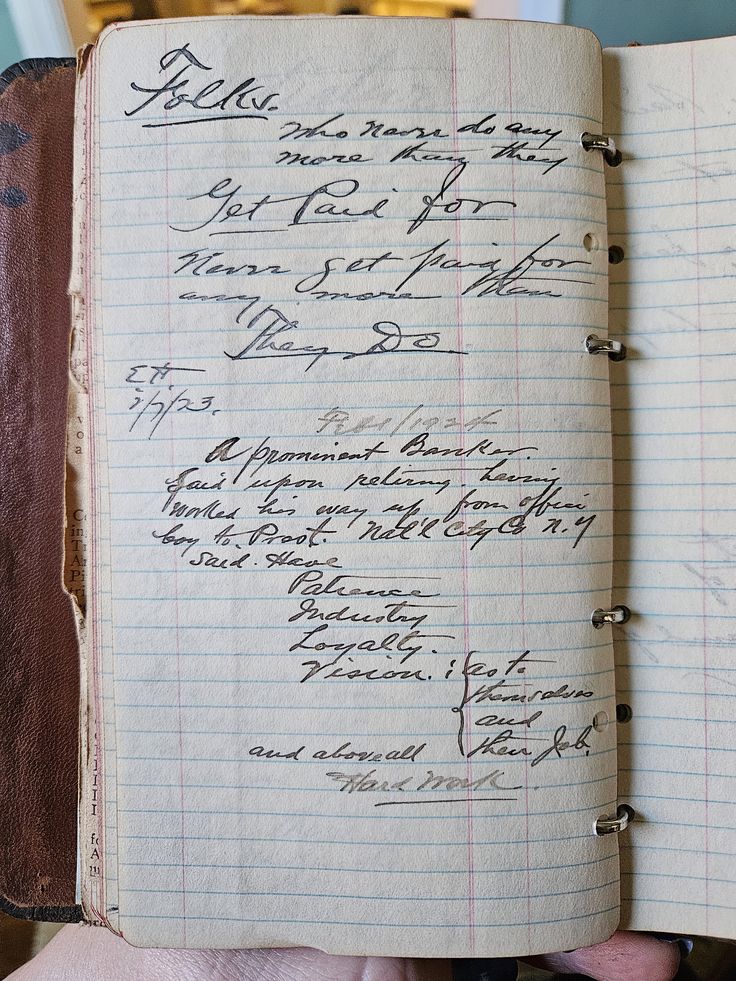 Folks.
who never do any
more than they
Get Paid for
Never get paid for
any more than
They Do
E.H.
7/7/23.
1924
A prominent Banker.
Said upon retiring, having
worked his way up from office
boy to Prest. Nat'l City Co N.Y
Said. Have
Patience
Industry
Loyalty.
Vision. : as to
themselves
and
their Job.
and above all
Hard Work.